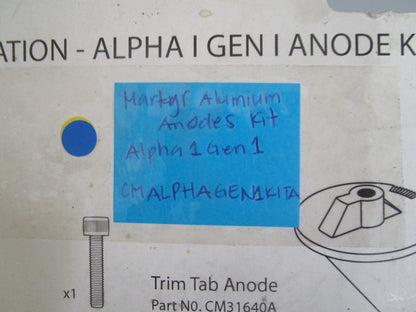 ATION - ALPHA I GEN I ANODE K
Martyr Alumium
Anodes Kit
Alpha 1 Gen 1
CMALPHAGEN1KITA
x1
Trim Tab Anode
Part NO. CM31640A